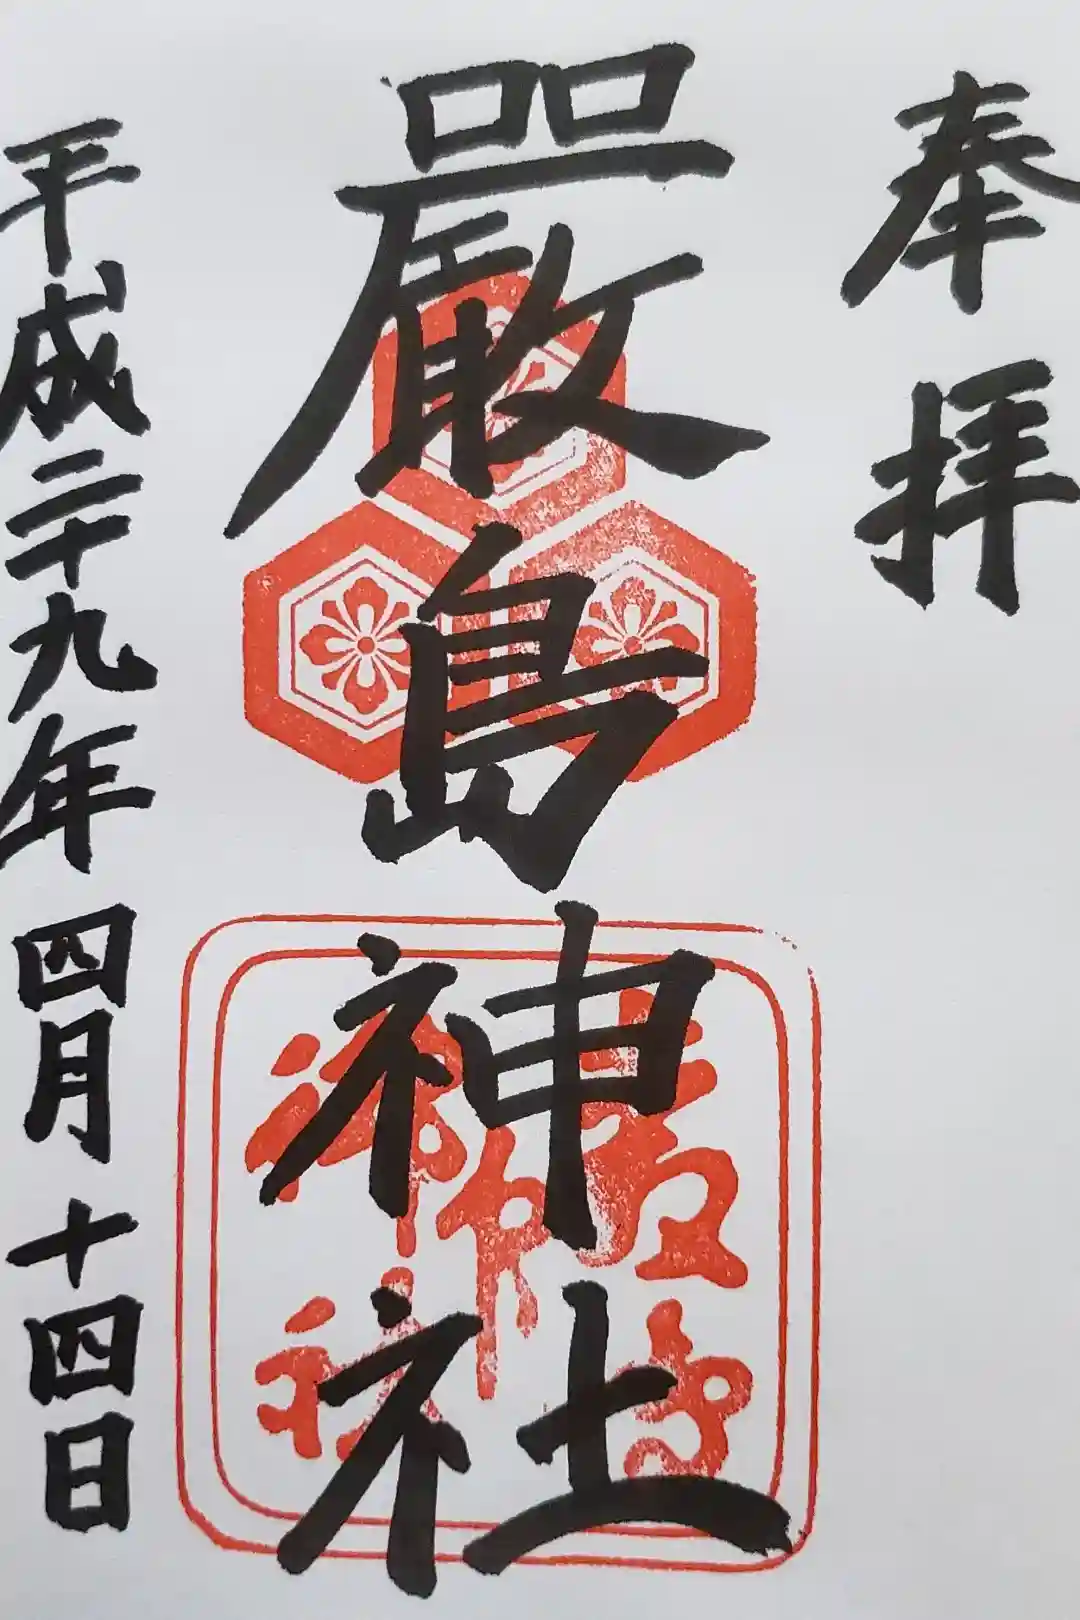 奉拝
嚴島神社
平成二十九年四月十四日